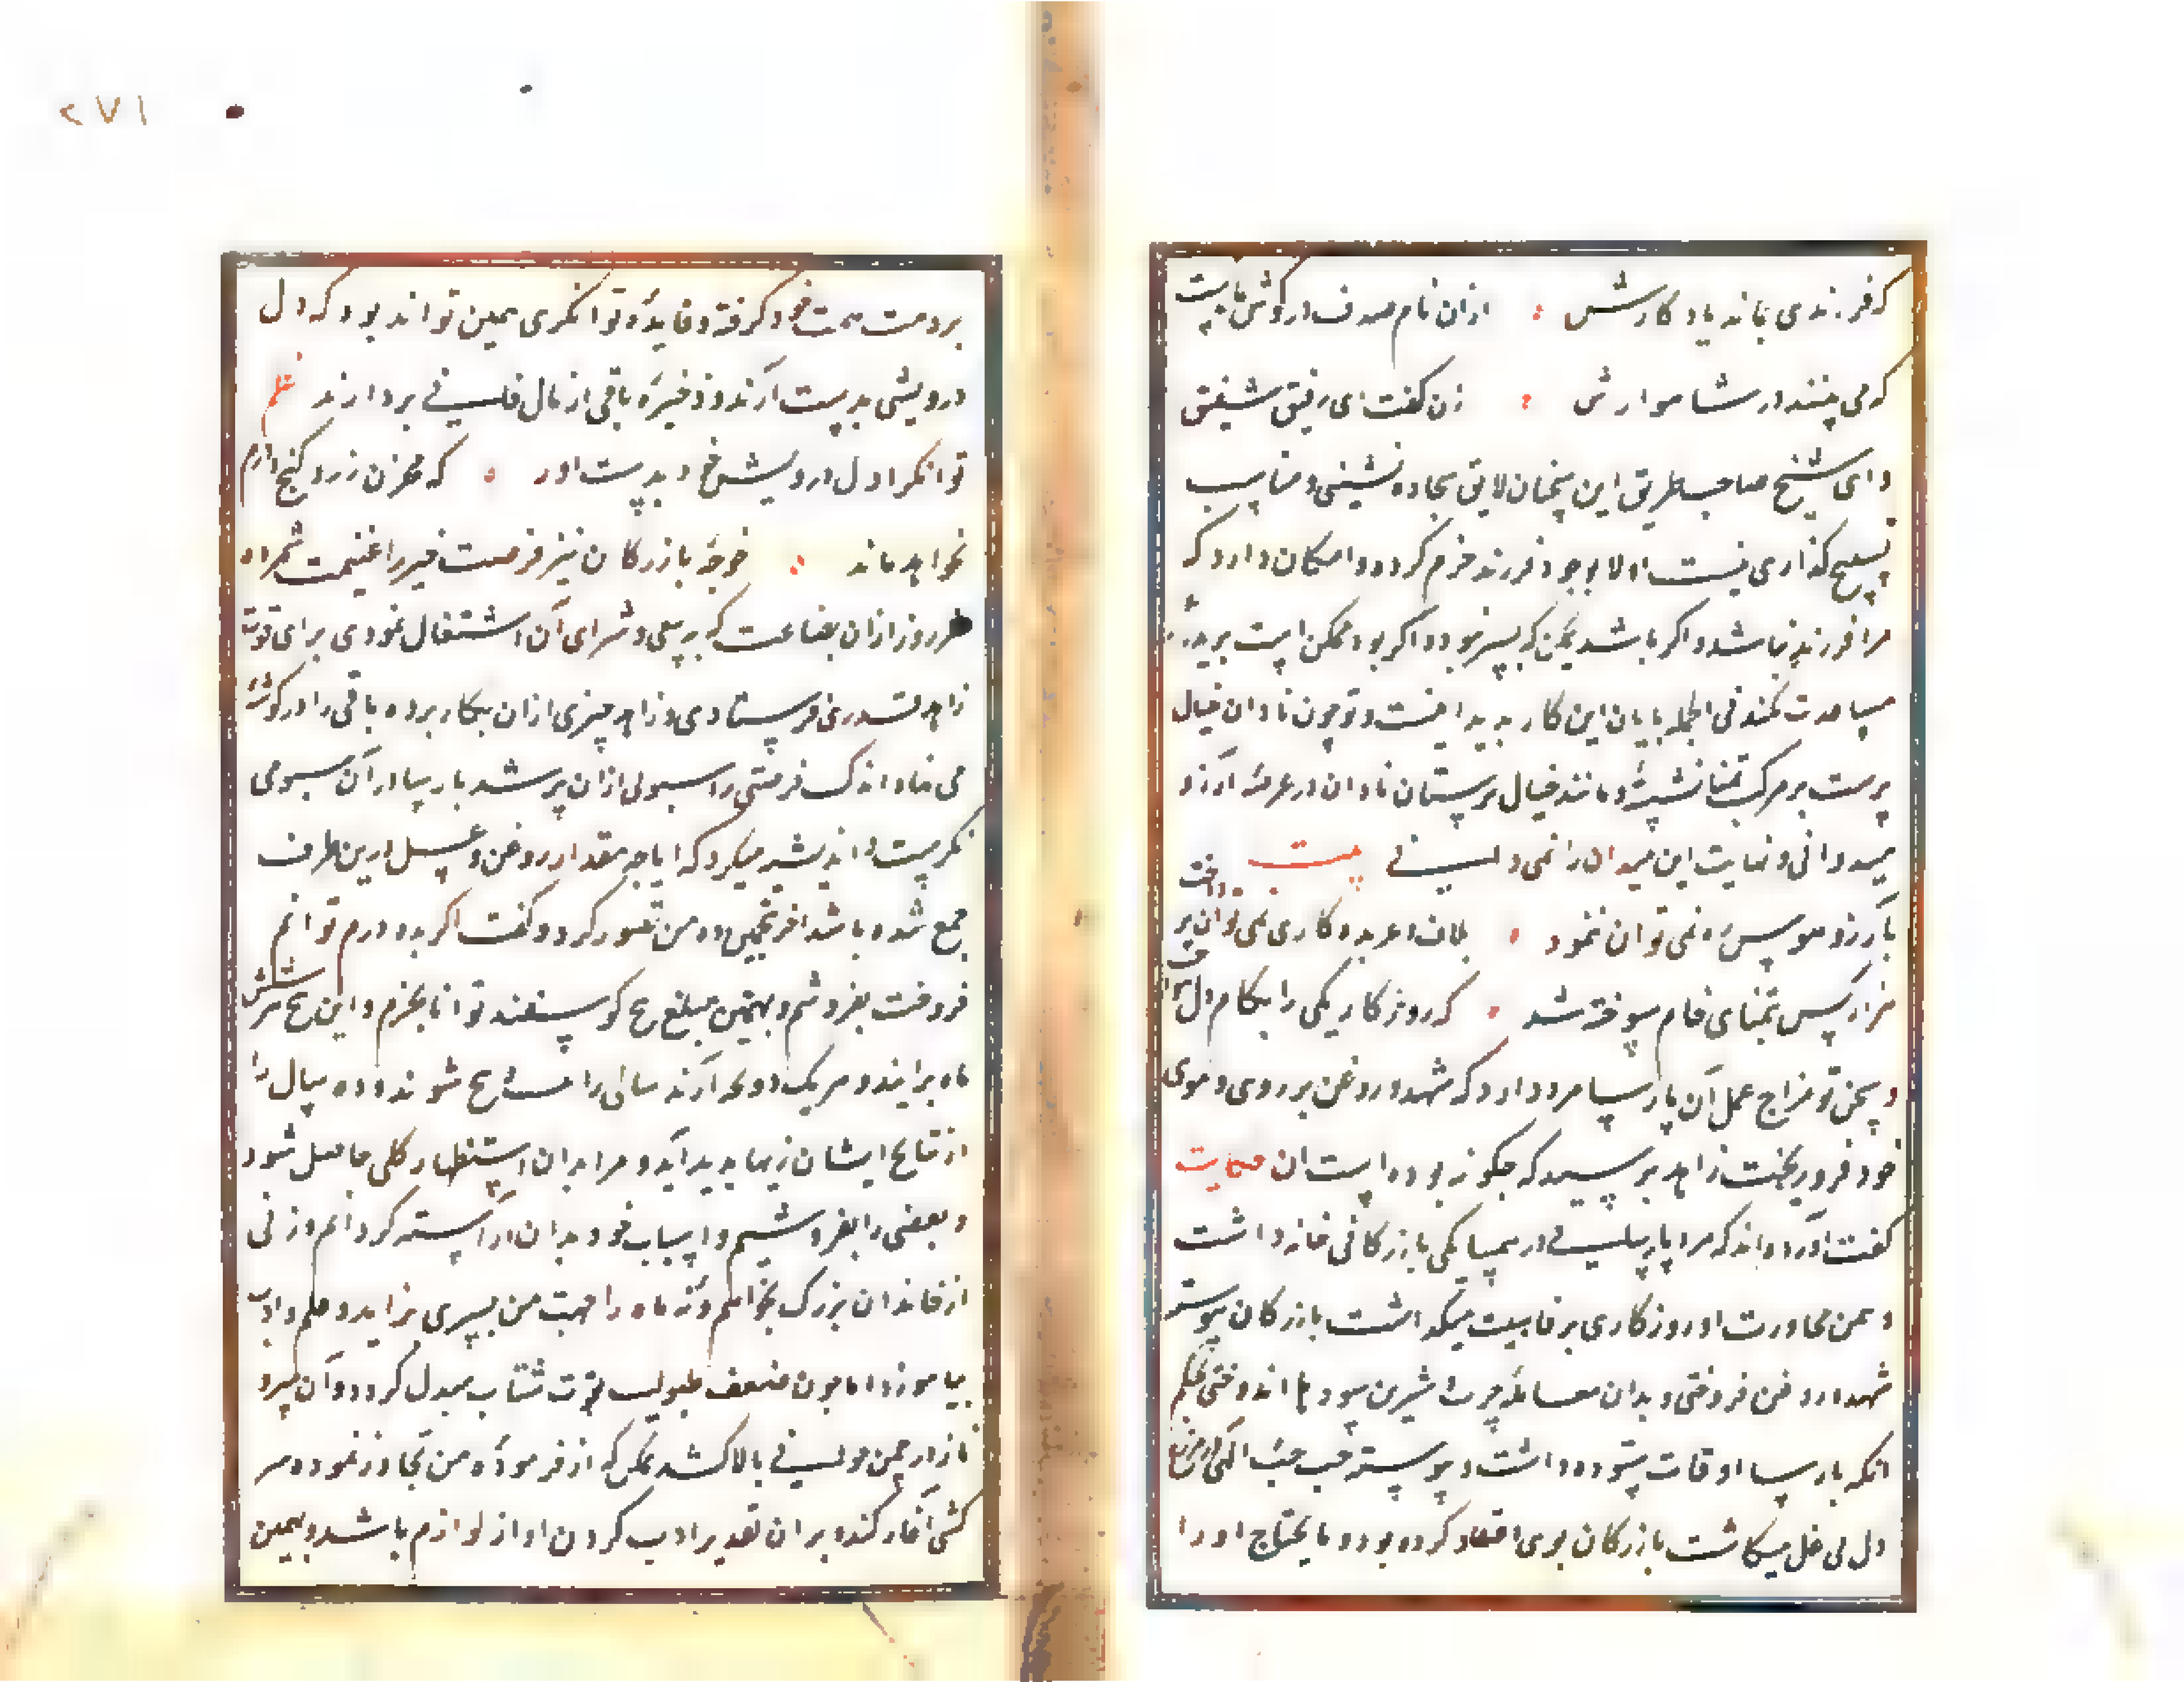 که فرزندی بماند یادکارش ازان نام صدف در کوش باپست
که می بینند در شاهوارش زن کفت ای رفیق شفیق
و ای شیخ صاحب طریق این سخنان لایق سجاده نشینی و مناسب
تسبیح کذاری نیست اولا بوجود فرزند جزم کرده و امکان دارد که
مرا فرزند نباشد و اکر باشد یمکن که پسر نبود و اکر بود ممکن است
مساعدت نکند فی الجمله پایان این کار پدید نیست و تو چون نادان خیال
پرست بر مرکب تمنا نشسته و مانند خیال پرستان نادان در عرصهٔ آرزو
میدوانی و نهایت این میدان را نمی دانی بیت
بآرزو و هوس ره نمی توان نمود بلاف و عربده کاری نمی توان پرداخت
هزار کس بتمنای خام سوخته شد که روزکار یکی را بکام دل
و سخن تو مزاج عمل آن پارسا مرد دارد که شهد و روغن بر روی و موی
خود فرو ریخت زاهد پرسید که چکونه بوده است آن حکایت
کفت آورده اند که مرد پارسایی در همسایکی بازرکانی خانه داشت
و بیمن مجاورت او روزکاری برفاهیت میکذاشت بازرکان پیوسته
شهد و روغن فروختی و بدان معاملهٔ چرب و شیرین سودها اندوختی بحکم
آنکه پارسا اوقات ستوده داشت و پیوسته حب محبت الهی در مزرع
دل بی غل میکاشت بازرکان بوی اعتقاد کرده بود و ما یحتاج او را
٢٧١
بر ذمت همت خود کرفته و فایدهٔ توانکری همین تواند بود که دل
درویشی بدست آرند و ذخیرهٔ باقی از مال فانی بردارند نظم
توانکرا دل درویش خود بدست اور که مخزن زر و کنج درم
نخواهد ماند خواجهٔ بازرکان نیز فرصت خیر را غنیمت شمرده
هر روز ازان بضاعت که به بیع و شرای آن اشتغال نمودی برای قوت
زاهد قدری فرستادی و زاهد چیزی ازان بکار برده باقی را در کوشهٔ
می نهاد اندک فرصتی را سبوئی ازان پر شد پارسا در آن سبو می
نکریست و اندیشه میکرد که ایا چه مقدار روغن و عسل درین ظرف
جمع شده باشد اخر بتخمین ده من تصور کرد و کفت اکر بده درم توانم
فروخت بفروشم و بهمین مبلغ پنج کوسفند توانا بخرم و این پنج هر شش
ماه بزایند و هر یک دو بچه آرند سالی را بیست و پنج شوند و ده سال را
از نتایج ایشان رمها پدید آید و مرا بدان استظهار کلی حاصل شود
و بعضی را بفروشیم و اسباب خود بدان آراسته کردانم و زنی
از خاندان بزرک بخواهم و نه ماه را جهت من پسری بزاید و علم و ادب
بیاموزد اما چون ضعف طفولیت بقوت شباب مبدل کردد و آن سرو
ناز در چمن جوانی بالا کشد یمکن که از فرمودهٔ من تجاوز نموده سر
کشی آغاز کند بر ان تقدیر ادب کردن او از لوازم باشد و بهمین